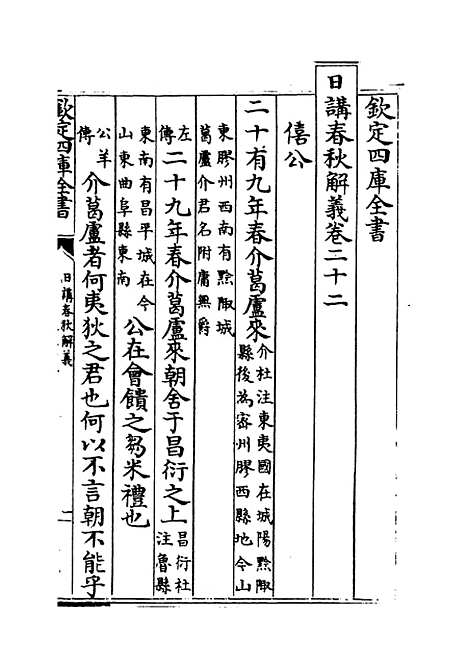 欽定四庫全書
日講春秋解義卷二十二
僖公
二十有九年春介葛盧來介杜注東夷國在城陽黔陬縣後為密州膠西縣地今山
東膠州西南有黔陬城葛盧介君名附庸無爵
左傳二十九年春介葛盧來朝舍于昌衍之上昌衍杜注魯縣
東南有昌平城在今山東曲阜縣東南公在會饋之芻米禮也
公羊傳介葛盧者何夷狄之君也何以不言朝不能乎
欽定四庫全書
日講春秋解義